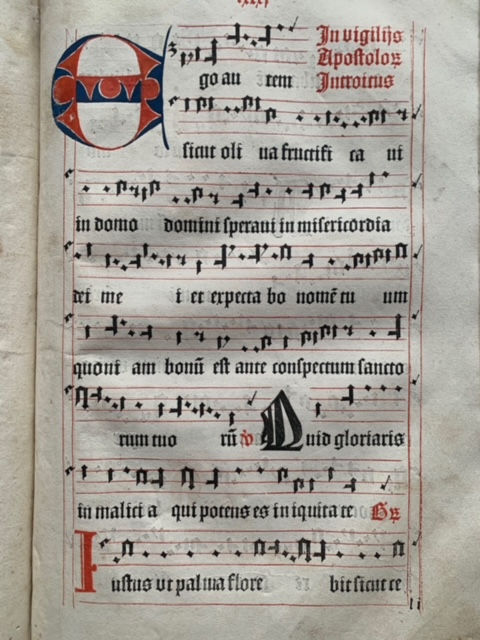 In vigilijs
Apostoloꝝ
Ego au tem Introitus
sicut oli ua fructifi ca ui
in domo domini speraui in misericordia
dei me i et expecta bo nomē tu um
quoni am bonū est ante conspectum sancto
rum tuo rū ℣ Quid gloriaris
in malici a qui potens es in iquita te Gꝝ
Iustus vt palma flore bit sicut ce